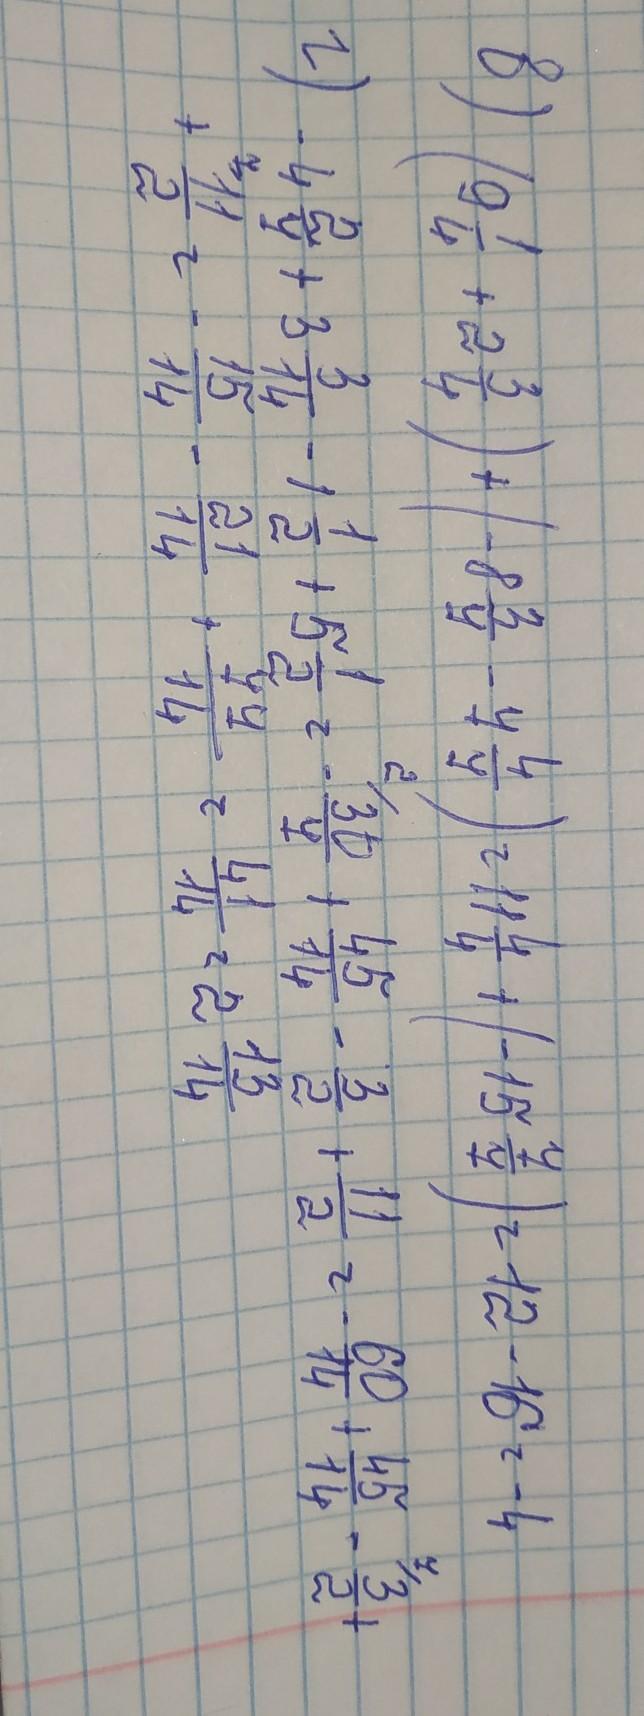 в) (9 1/4 + 2 3/4) + (-8 3/7 - 7 4/7) = 11 4/4 + (-15 7/7) = 12 - 16 = -4
г) -4 2/7 + 3 3/14 - 1 1/2 + 5 1/2 = -30/7 + 45/14 - 3/2 + 11/2 = -60/14 + 45/14 - 3/2 +
+ 11/2 = -15/14 - 21/14 + 77/14 = 41/14 = 2 13/14